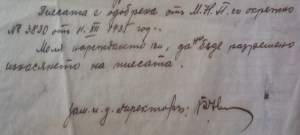 Пиесата е одобрена от М.Н.П. со окръжно
№ 3830 от 11. III 1935 год.
Моля нареждането ви, да ми бъде разрешено
изнасянето на пиесата.
директоръ: